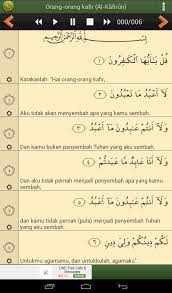 Orang-orang kafir (Al-Kāfirūn)
000/006
قُلْ يَٰٓأَيُّهَا ٱلْكَٰفِرُونَ ١
Katakanlah: "Hai orang-orang kafir,
لَآ أَعْبُدُ مَا تَعْبُدُونَ ٢
Aku tidak akan menyembah apa yang kamu sembah.
وَلَآ أَنتُمْ عَٰبِدُونَ مَآ أَعْبُدُ ٣
Dan kamu bukan penyembah Tuhan yang aku sembah.
وَلَآ أَنَا۠ عَابِدٌ مَّا عَبَدتُّمْ ٤
Dan aku tidak pernah menjadi penyembah apa yang kamu sembah,
وَلَآ أَنتُمْ عَٰبِدُونَ مَآ أَعْبُدُ ٥
dan kamu tidak pernah (pula) menjadi penyembah Tuhan yang aku sembah.
لَكُمْ دِينُكُمْ وَلِىَ دِينِ ٦
Untukmu agamamu, dan untukkulah, agamaku".
LINE: Free Calls &
Messages